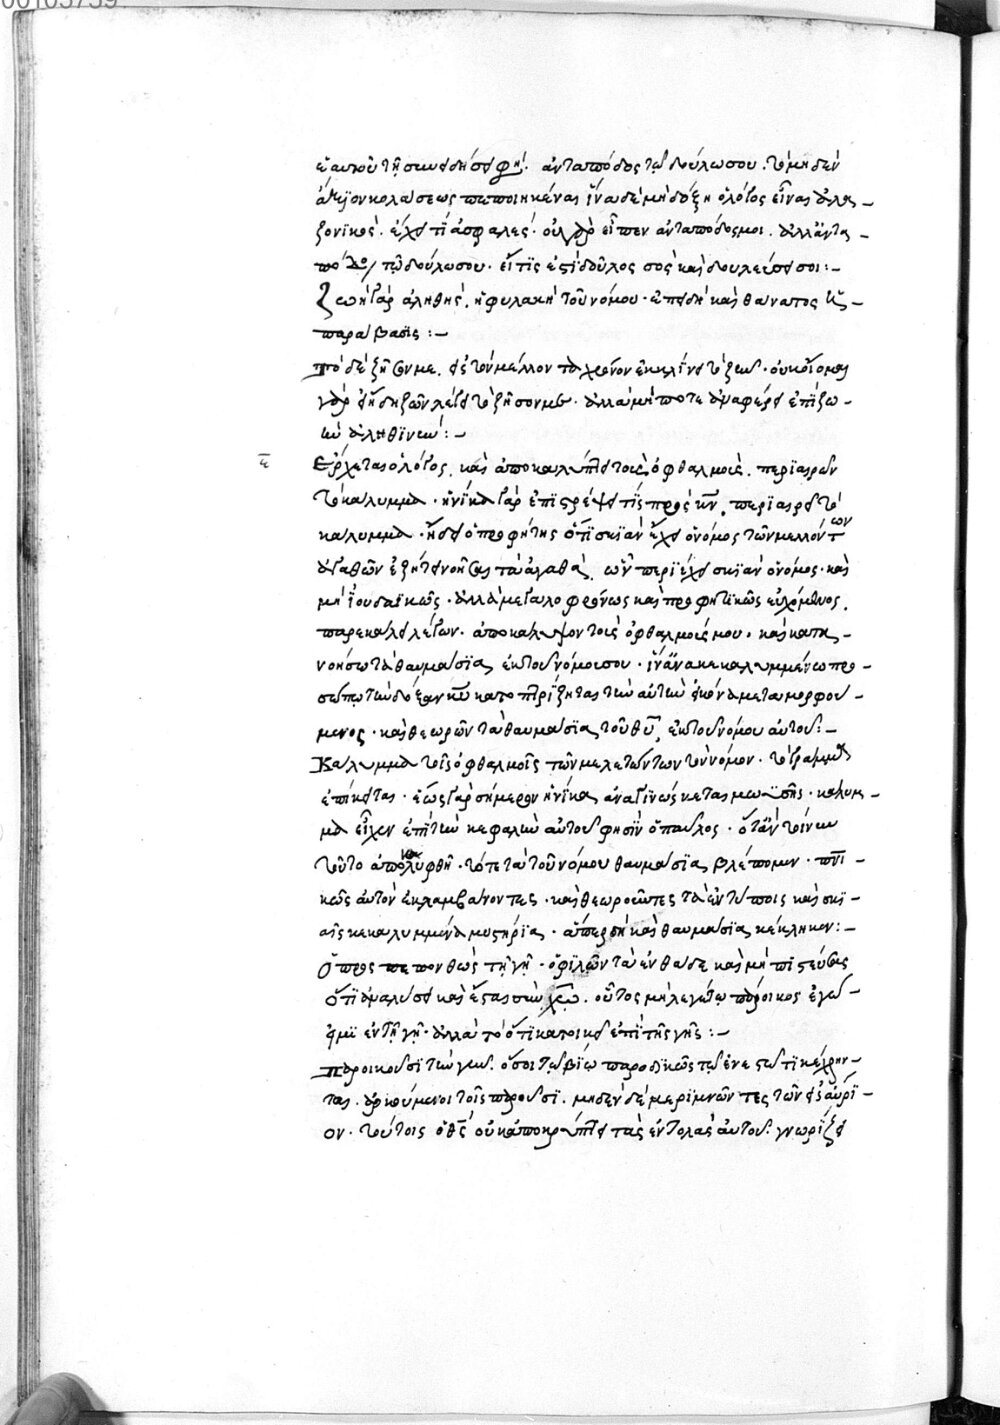 00105739
ἑαυτοῦ τῇ συνειδήσει φησί. ἀνταπόδος τῷ δούλω σου. τὸ μηδὲν
ἄξιον κολάσεως πεποιηκέναι ἵνα δὲ μὴ δόξη ὁ λόγος εἶναι ἀλα –
ζονικὸς. ἔχει τί ἀσφαλές. οὐ γὰρ εἶπεν ἀνταπόδος μοι. ἀλλ' ἀντα –
πόδος τῷ δούλω σου. εἴ τις ἐστὶ δοῦλος σὸς καὶ δουλεύει σοι : –
Ζωὴ γὰρ ἀληθὴς. ἡ φυλακὴ τοῦ νόμου. ἐπειδὴ καὶ θάνατος ἡ –
παράβασις : –
Τὸ δὲ ζήσομαι. εἰς τὸν μέλλοντα χρόνον ἐκκλίνει τὸ ζῶ. οὐκ οἴομαι
γὰρ εἰ ἤδη ζῶν λέγει τὸ ζήσομαι. ἀλλὰ μήποτε ἀναφέρει ἐπὶ ζω –
ὴν ἀληθινὴν : –
ιε Ἔρχεται ὁ λόγος. καὶ ἀποκαλύπτει τοὺς ὀφθαλμοὺς. περιαιρῶν
τὸ κάλυμμα. ἡνίκα γὰρ ἐπιστρέψει τίς πρὸς κν. περιαιρεῖ τὸ
κάλυμμα. ἤδει ὁ προφήτης ὅτι σκιὰν ἔχει ὁ νόμος τῶν μελλόντων
ἀγαθῶν ἐζήτει νοῆσαι τὰ ἀγαθὰ. ὧν περιέχει σκιὰν ὁ νόμος. καὶ
μὴ ἰουδαϊκῶς. ἀλλὰ μεγαλοφρόνως καὶ προφητικῶς εὐχόμενος.
παρεκάλει λέγων. ἀποκάλυψον τοὺς ὀφθαλμούς μου. καὶ κατα –
νοήσω τὰ θαυμάσια ἐκ τοῦ νόμου σου. ἵνα ἀνακεκαλυμμένω προ –
σώπω τὴν δόξαν κυ κατοπτρίζηται τὴν αὐτὴν εἰκόνα μεταμορφού –
μενος. καὶ θεωρῶν τὰ θαυμάσια τοῦ θυ ἐκ τοῦ νόμου αὐτοῦ : –
Κάλυμμα τοῖς ὀφθαλμοῖς τῶν μελετώντων τὸν νόμον. τὸ γράμμα
ἐπίκειται. ἕως γὰρ σήμερον ἡνίκα ἀναγινώσκεται μωϋσῆς. κάλυμ –
μα εἶχεν ἐπὶ τὴν κεφαλὴν αὐτοῦ φησὶν ὁ παῦλος. ὅταν τοίνυν
τοῦτο ἀποκαλυφθῆ. τότε τὰ τοῦ νόμου θαυμάσια βλέπομεν. πνι –
κῶς αὐτὸν ἐκλαμβάνοντες. καὶ θεωροῦντες τὰ ἐν τύποις καὶ σκι –
αῖς κεκαλυμμένα μυστήρια. ἅπερ δὴ καὶ θαυμάσια κέκληκεν : –
Ὁ προσπεπονθὼς τῇ γῇ. ὁ φιλῶν τὰ ἐνθάδε καὶ μὴ πιστεύσας
ὅτι ἀναλύσει καὶ ἔσται σὺν χω. οὗτος μὴ λεγέτω πάροικος ἐγώ –
εἰμι ἐν τῇ γῇ. ἀλλὰ τὸ ὅτι κατοικεῖ ἐπὶ τῆς γῆς : –
Παροικοῦσι τὴν γῆν. ὅσοι τῷ βίω παροδικῶς τῷ ἐνεστῶτι κέχρην –
ται. ἀρκούμενοι τοῖς παροῦσι. μηδὲν δὲ μεριμνῶντες τῶν εἰς αὔρι –
ον. τούτοις ὁ θς οὐκ ἀποκρύπτει τὰς ἐντολὰς αὐτοῦ. γνωρίζει